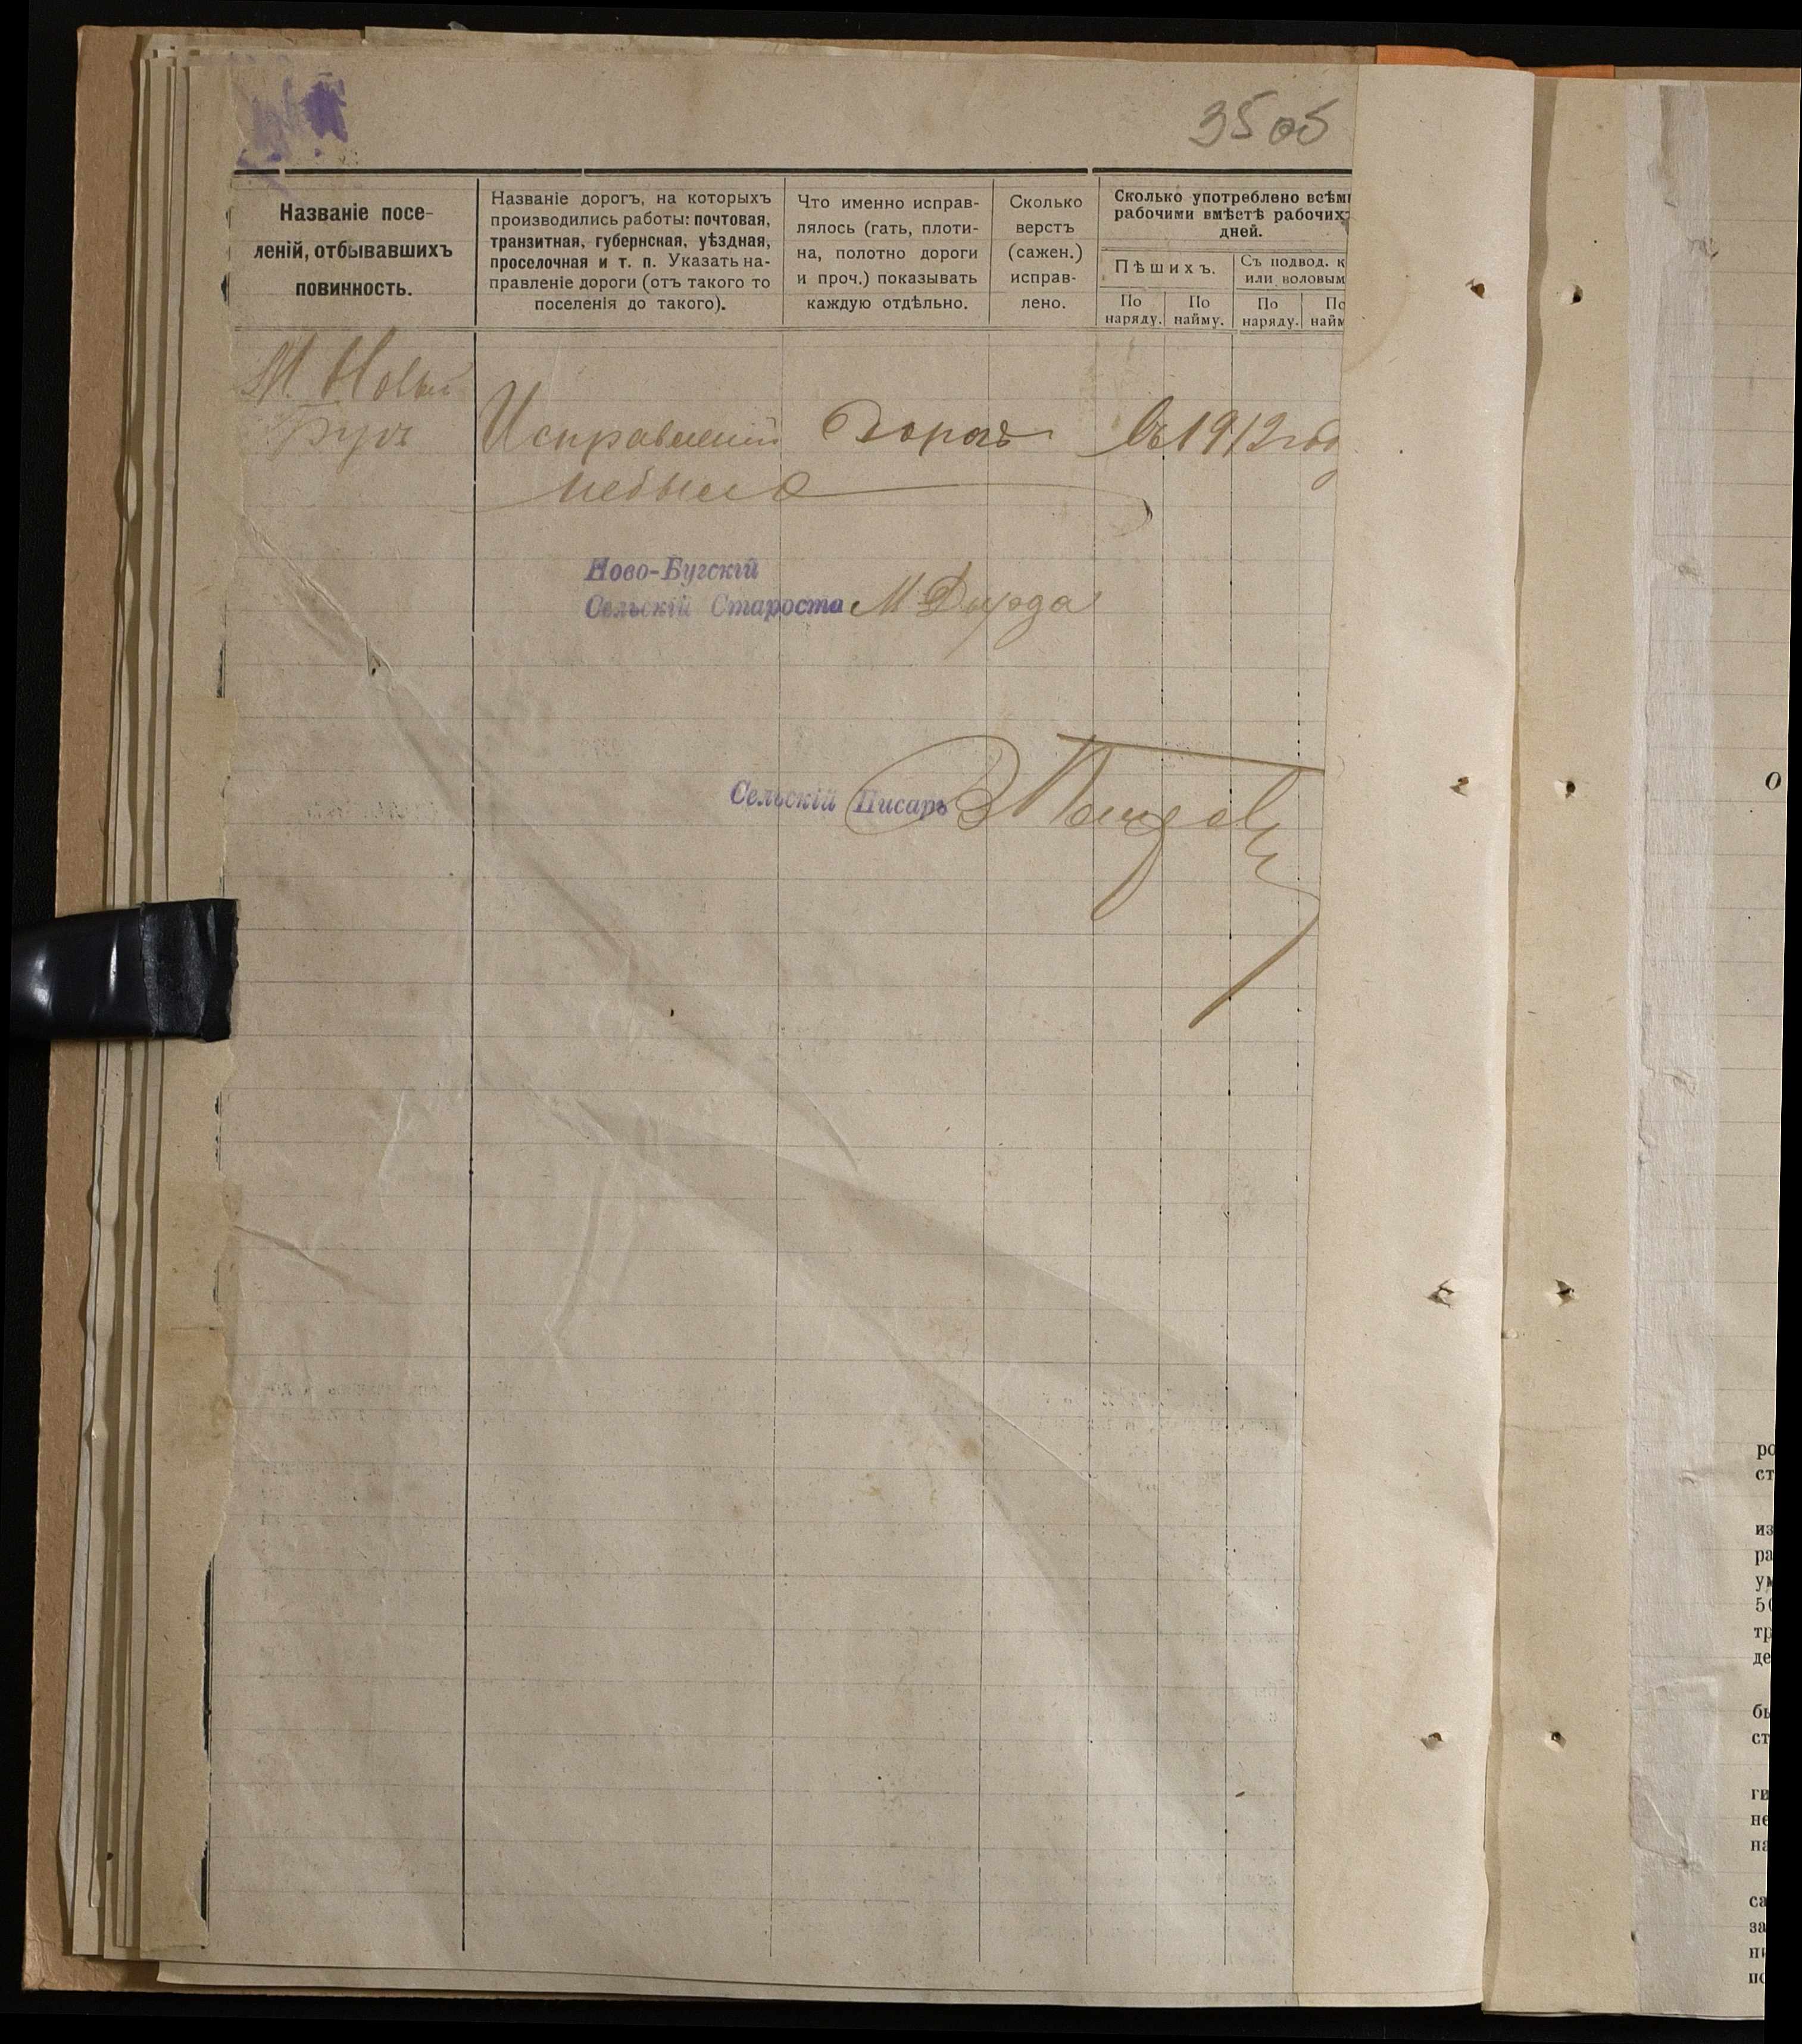 35 об
Названіе посе-
леній, отбывавшихъ
повинность.
Названіе дорогъ, на которыхъ
производились работы: почтовая,
транзитная, губернская, уѣздная,
проселочная и т. п. Указать на-
правленіе дороги (отъ такого то
поселенія до такого).
Что именно исправ-
лялось (гать, плоти-
на, полотно дороги
и проч.) показывать
каждую отдѣльно.
Сколько
верстъ
(сажен.)
исправ-
лено.
Сколько употреблено всѣми
рабочими вмѣстѣ рабочихъ
дней.
Пѣшихъ.
Съ подвод. к
или воловым
По
наряду.
По
найму.
По
наряду.
По
найм
М. Новый
Бугъ
Исправленій дорогъ въ 1912 году
небыло
Ново-Бугскій
Сельскій Староста М Дырда
Сельскій Писарь
О
ро
ст
из
ра
ум
50
тр
де
бы
ст
ги
не
на
са
за
ни
по